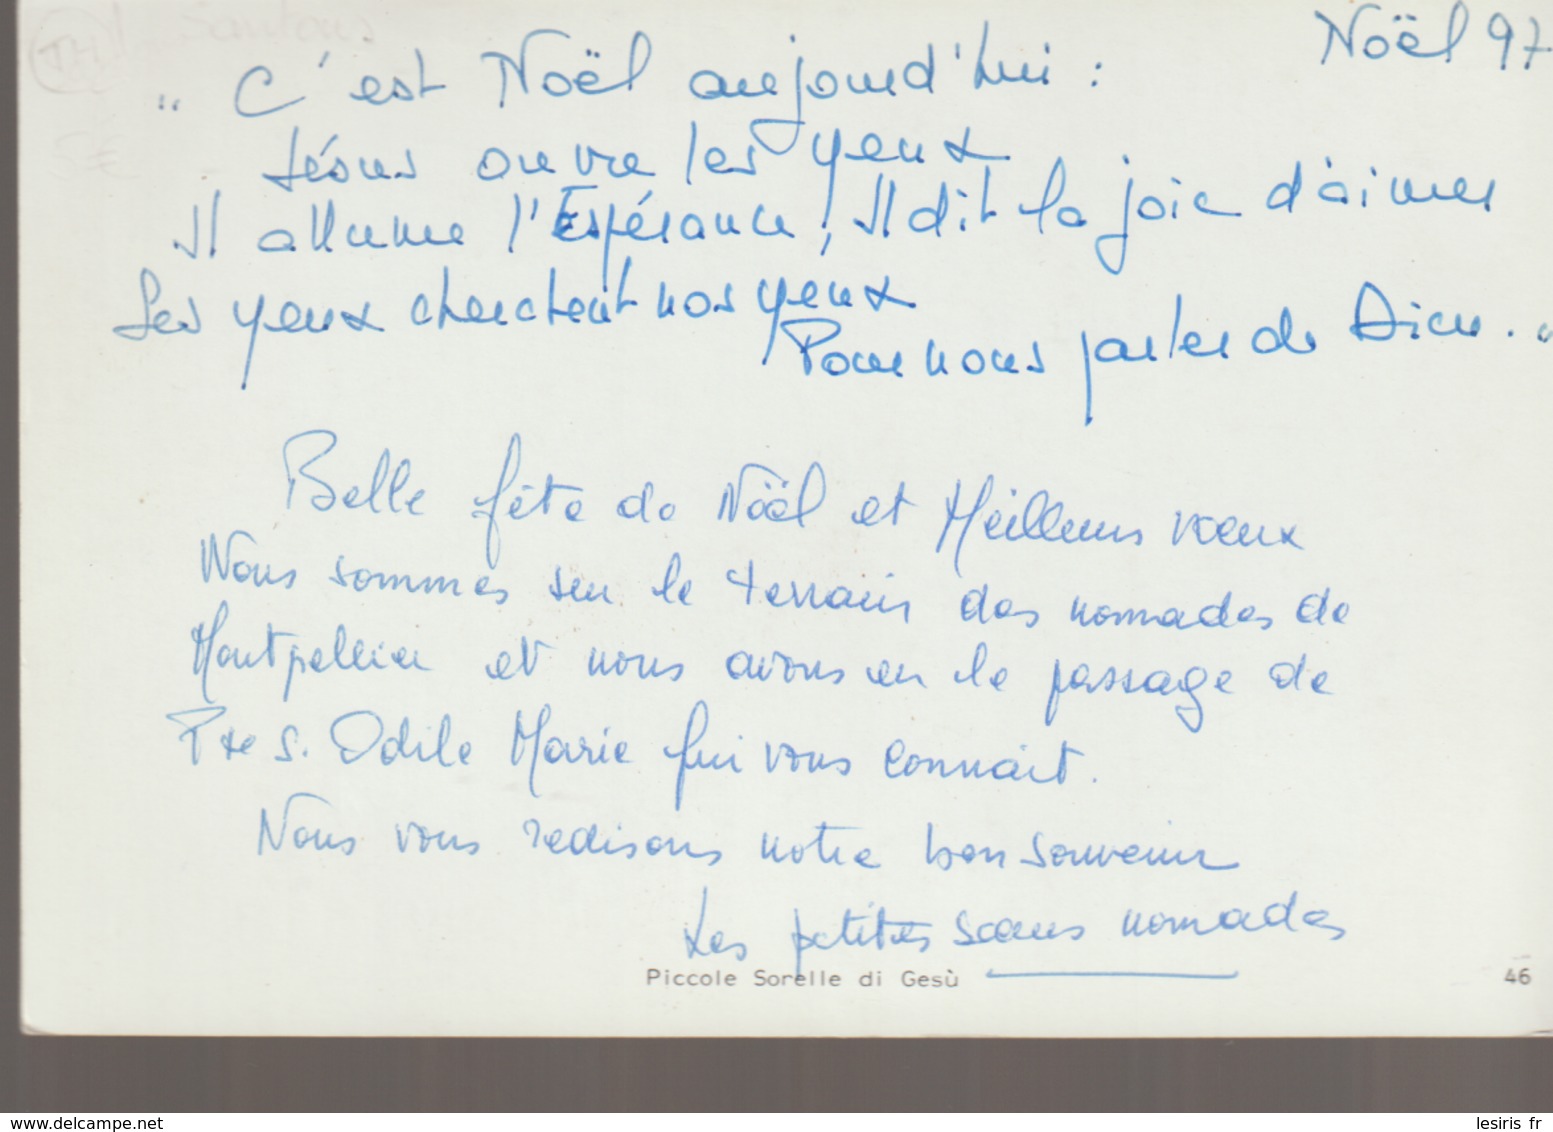 TH Santons
5€
Noël 97
" C'est Noël aujourd'hui :
Jésus ouvre les yeux
Il allume l'Espérance, Il dit la joie d'aimer
Ses yeux cherchent nos yeux
Pour nous parler de Dieu. "
Belle fête de Noël et Meilleurs vœux
Nous sommes sur le terrain des nomades de
Montpellier et nous avons eu le passage de
Pte S. Odile Marie qui vous connait.
Nous vous redisons notre bon souvenir
Les petites sœurs nomades
Piccole Sorelle di Gesù 46
www.delcampe.net lesiris fr